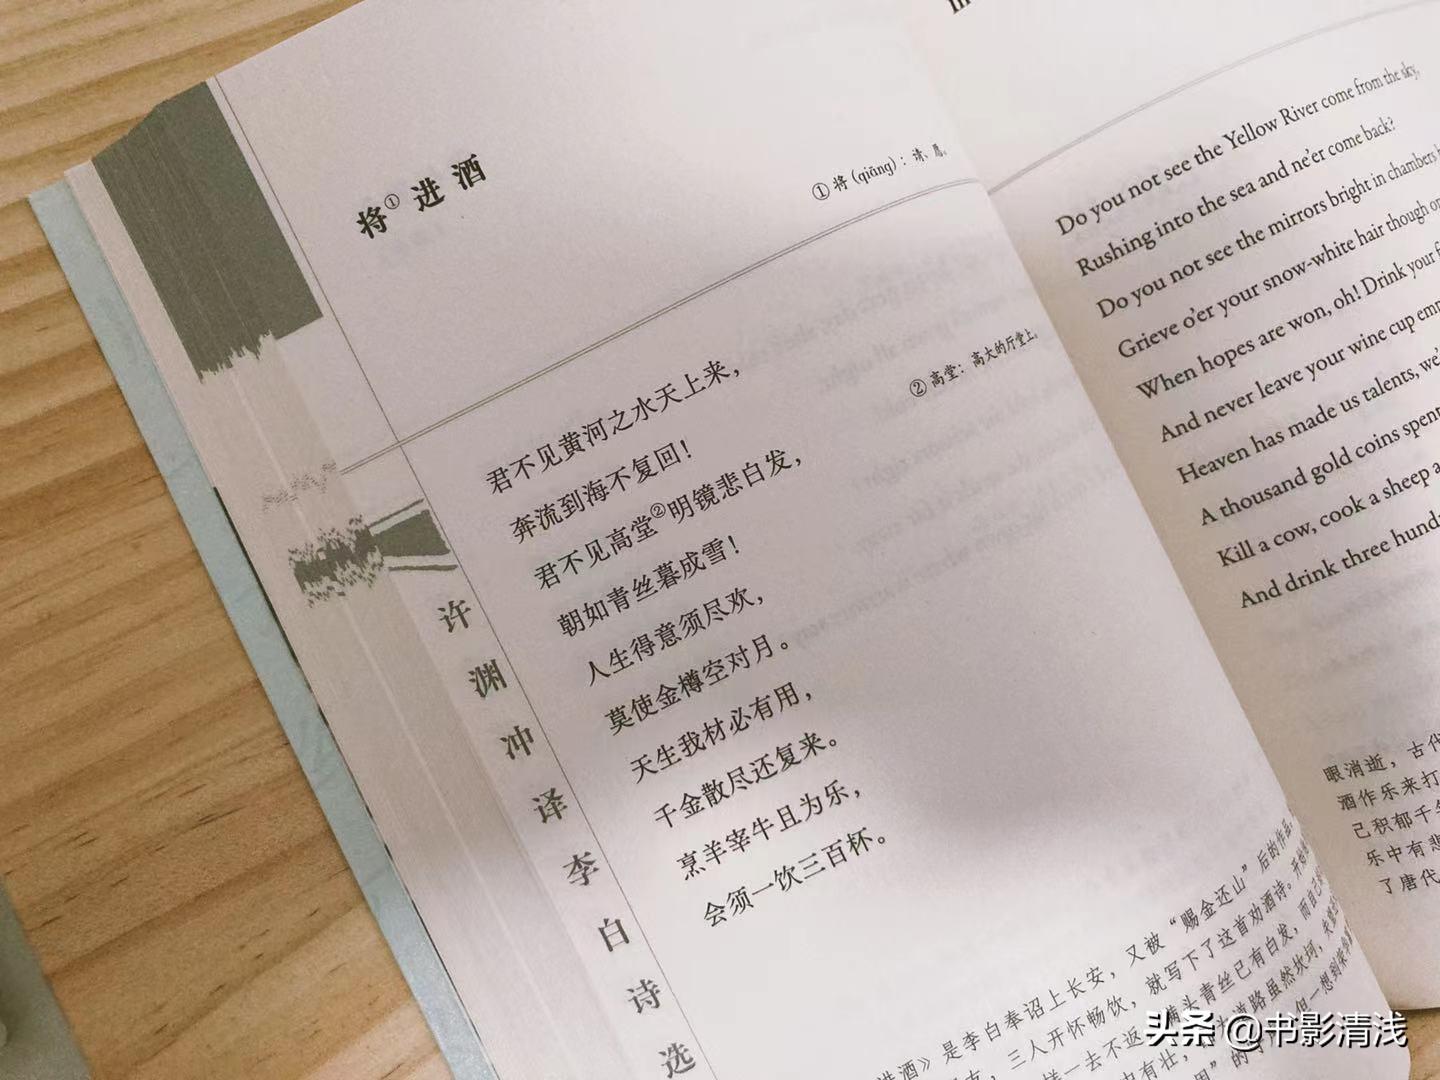 将①进酒
①将(qiāng)：请、愿。
君不见黄河之水天上来，
奔流到海不复回！
君不见高堂②明镜悲白发，
朝如青丝暮成雪！
人生得意须尽欢，
莫使金樽空对月。
天生我材必有用，
千金散尽还复来。
烹羊宰牛且为乐，
会须一饮三百杯。
②高堂：高大的厅堂上。
许渊冲译李白诗选
进酒》是李白奉诏上长安，又被“赐金还山”后的作品。
三人开怀畅饮，就写下了这首劝酒诗。
一去不返，满头青丝已有白发，而自己
道路虽然坎坷，
想到
Do you not see the Yellow River come from the sky,
Rushing into the sea and ne'er come back?
Do you not see the mirrors bright in chambers
Grieve o'er your snow-white hair though
When hopes are won, oh! Drink your
And never leave your wine cup
Heaven has made us talents,
A thousand gold coins spent
Kill a cow, cook a sheep
And drink three
眼消逝，古代
酒作乐来打
己积郁千
乐中有悲
了唐代
头条 @书影清浅